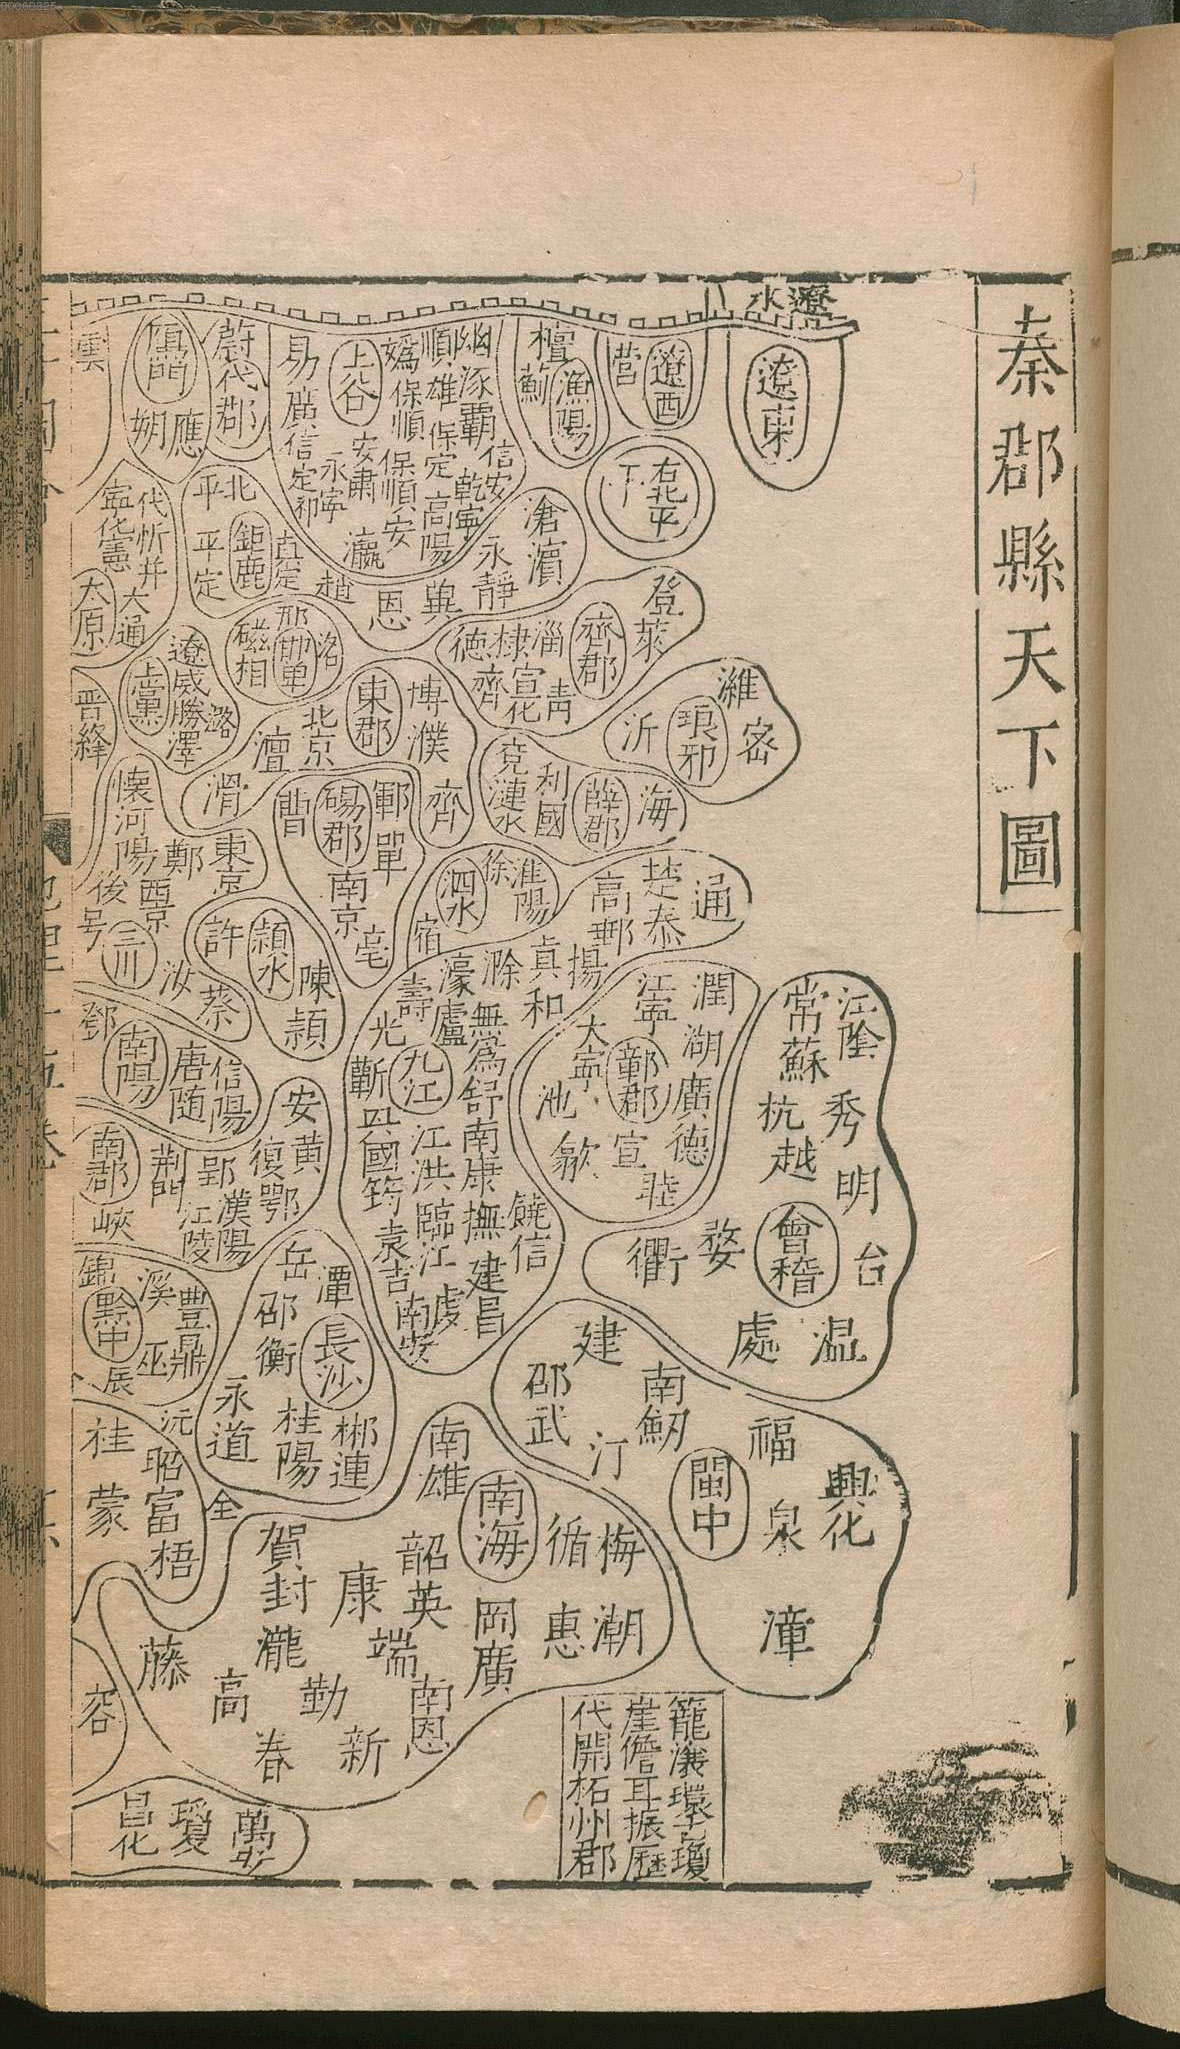 秦郡縣天下圖
遼水
遼東
遼西
營
右北平
檀
薊
漁陽
幽涿霸
信安
順雄保定
高陽
乾寧
嬀保順
保順安
上谷
安肅
永寧
瀛
易廣信定祁
蔚代郡
鴈門
應
朔
雲
滄濱
永靜
冀
恩
趙
真定
鉅鹿
北平
平定
代忻并
大通
寧化憲
太原
登萊
齊郡
淄
青
棣
宣化
德
齊
濰
密
琅邪
沂
洺
邯鄲
邢
磁相
遼威勝澤
潞
上黨
晉絳
博濮
齊
東郡
北京
澶
滑
海
薛郡
利國
兗
漣水
鄆單
碭郡
曹
南京
亳
懷河陽
鄭
東京
西京
三川
汝
蔡
許
潁水
陳潁
淮陽
徐
泗水
宿
通
楚泰
高郵
揚
真
和
滁
濠廬
壽
光
蘄
九江
無爲舒
南康撫建昌
饒信
江洪臨江
虔
興國筠
袁吉
南安
潤湖廣德
江寧
大寧
鄣郡
池
歙
宣
睦
江陰
常蘇
秀
杭越
明
會稽
台
溫
處
婺
衢
鄧
南陽
唐隨
信陽
安黃
復鄂
漢陽
郢
江陵
荆門
南郡
峽
岳
潭
邵衡
長沙
永道
桂陽
郴連
全
錦
黔中
辰
溪
巫
豐鼎
沅
桂蒙
昭富梧
建
邵武
南劒
汀
福
閩中
泉
興化
漳
南雄
南海
循
梅潮
惠
韶英
岡廣
康
端
南恩
賀封瀧
勤
新
藤
高
春
容
昌化
瓊
萬安
崖儋耳振歷
代開柘州郡